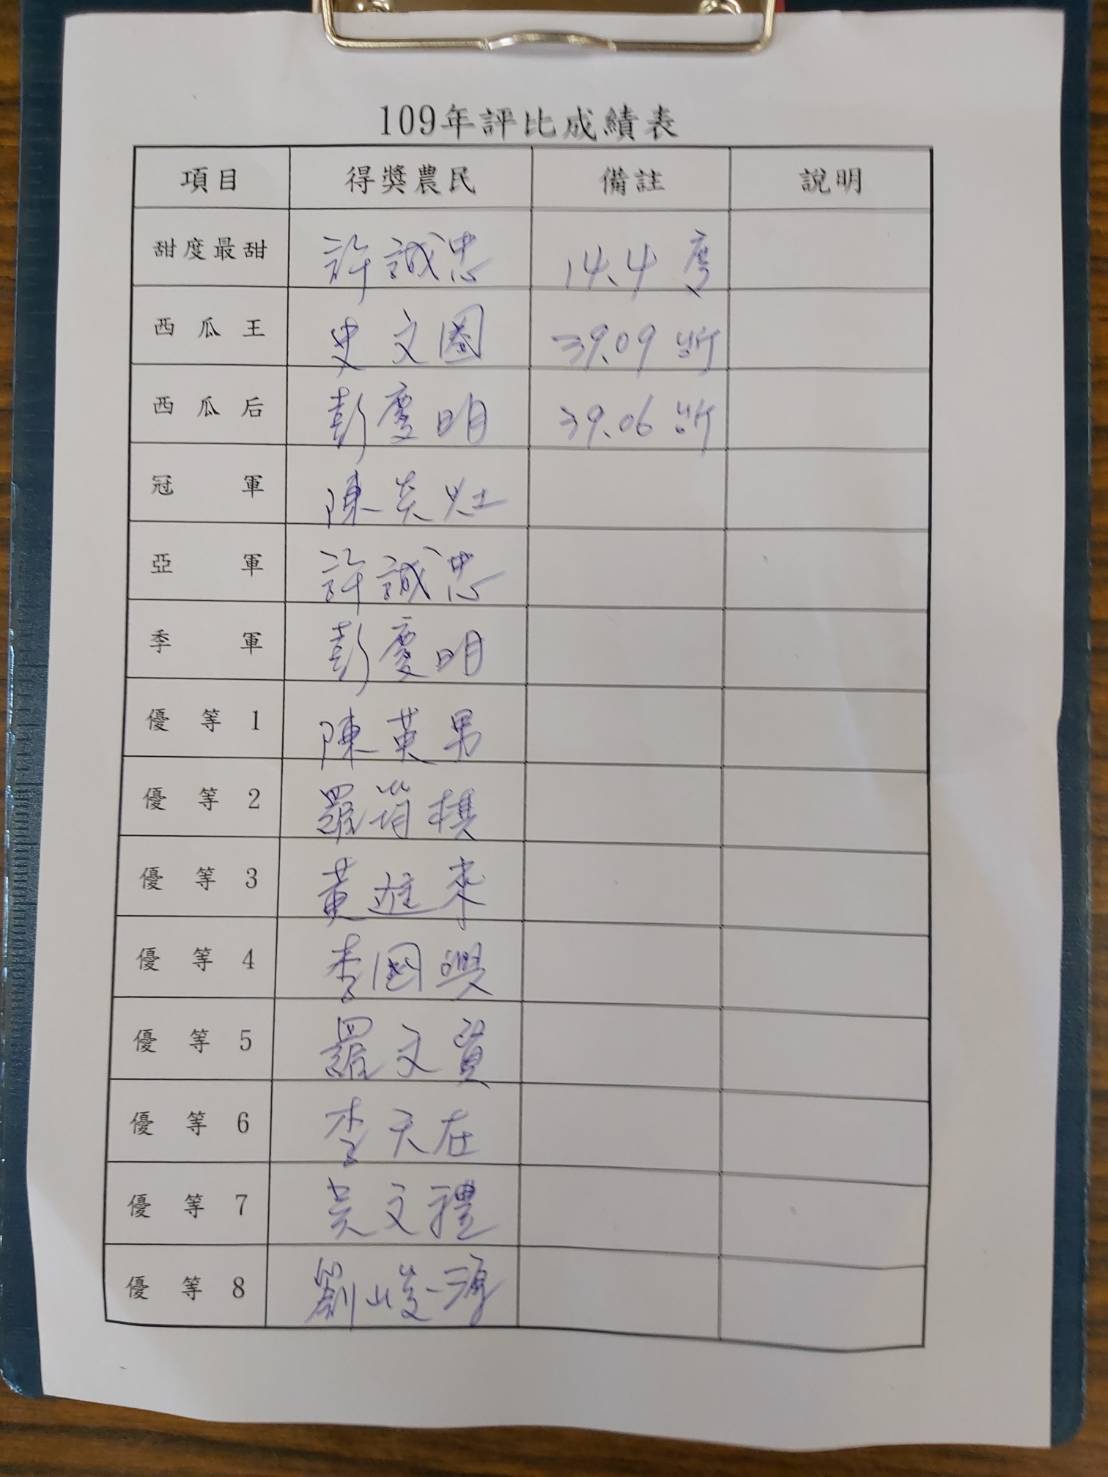 109年評比成績表
項目 得獎農民 備註 說明
甜度最甜 許誠忠 14.4度
西瓜王 史文國 39.09斤
西瓜后 彭慶明 39.06斤
冠軍 陳炎灶
亞軍 許誠忠
季軍 彭慶明
優等1 陳英男
優等2 羅筠棋
優等3 黃進來
優等4 李國興
優等5 羅文賢
優等6 李天在
優等7 吳文禮
優等8 劉峻